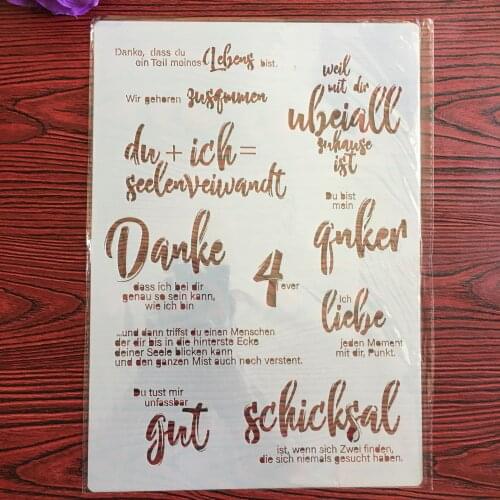 Danke, dass du
ein Teil meines Lebens bist.
weil
mit dir
ubeiall
zuhause
ist
Wir gehoren zusammen
du + ich =
seelenveiwandt
Du bist
mein
anker
Danke
dass ich bei dir
genau so sein kann,
wie ich bin
4 ever
Ich
liebe
jeden Moment
mit dir, Punkt.
...und dann triffst du einen Menschen
der dir bis in die hinterste Ecke
deiner Seele blicken kann
und den ganzen Mist auch noch verstent.
Du tust mir
unfassbar
gut
schicksal
ist, wenn sich Zwei finden,
die sich niemals gesucht haben.